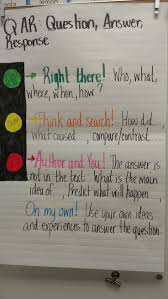 QAR: Question, Answer,
Response
Right there! Who, what,
where, when, how?
Think and search! How did
what caused , compare/contrast
Author and You! The answer is
not in the text What is the main
idea of , Predict what will happen
On my own! Use your own ideas
and experiences to answer the question